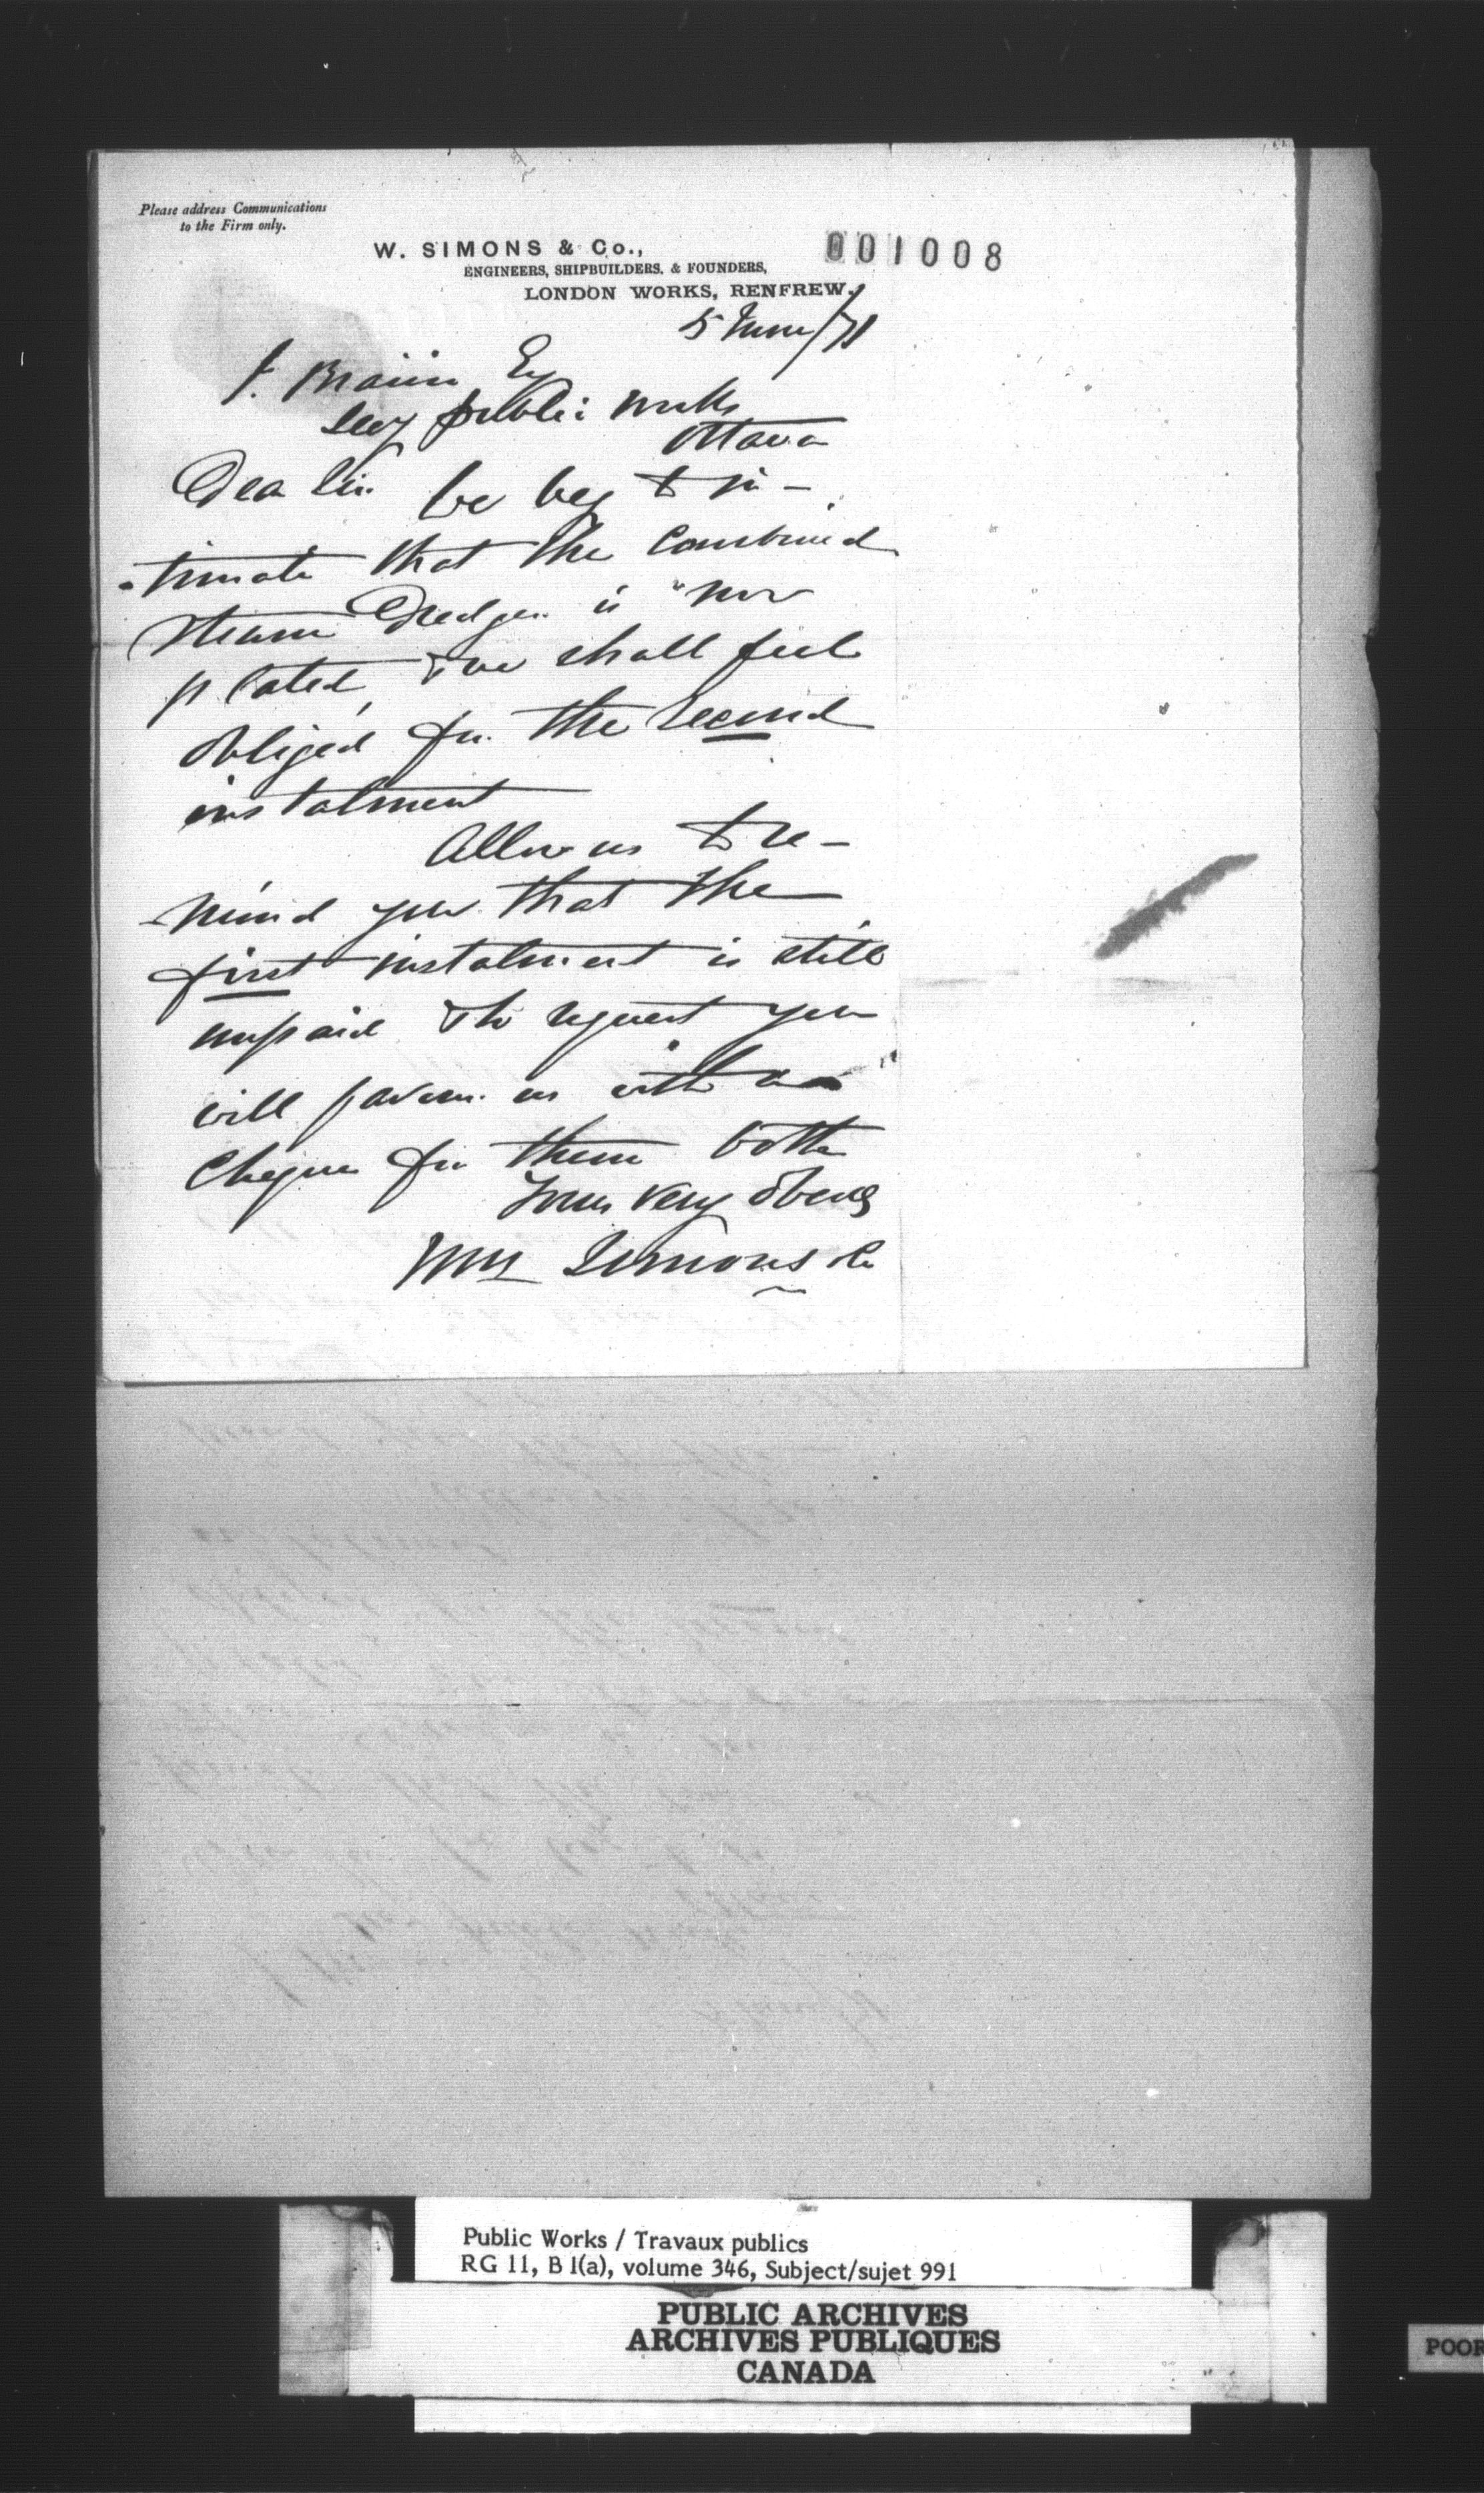 Please address Communications
to the Firm only.
W. SIMONS & Co.,
001008
ENGINEERS, SHIPBUILDERS. & FOUNDERS,
LONDON WORKS, RENFREW.
5 June/71
F. Braun Esq
Secy public works
Ottawa
Dear Sir. We beg to in-
-timate that the Combined
Steam Dredger is now
plated, & we shall feel
obliged for the Second
instalment
Allow us to re-
-mind you that the
first instalment is still
unpaid & to request you
will favour us with a
Cheque for them both
Yours very
Wm Simons & Co
Public Works / Travaux publics
RG 11, B 1(a), volume 346, Subject/sujet 991
PUBLIC ARCHIVES
ARCHIVES PUBLIQUES
CANADA
POOR